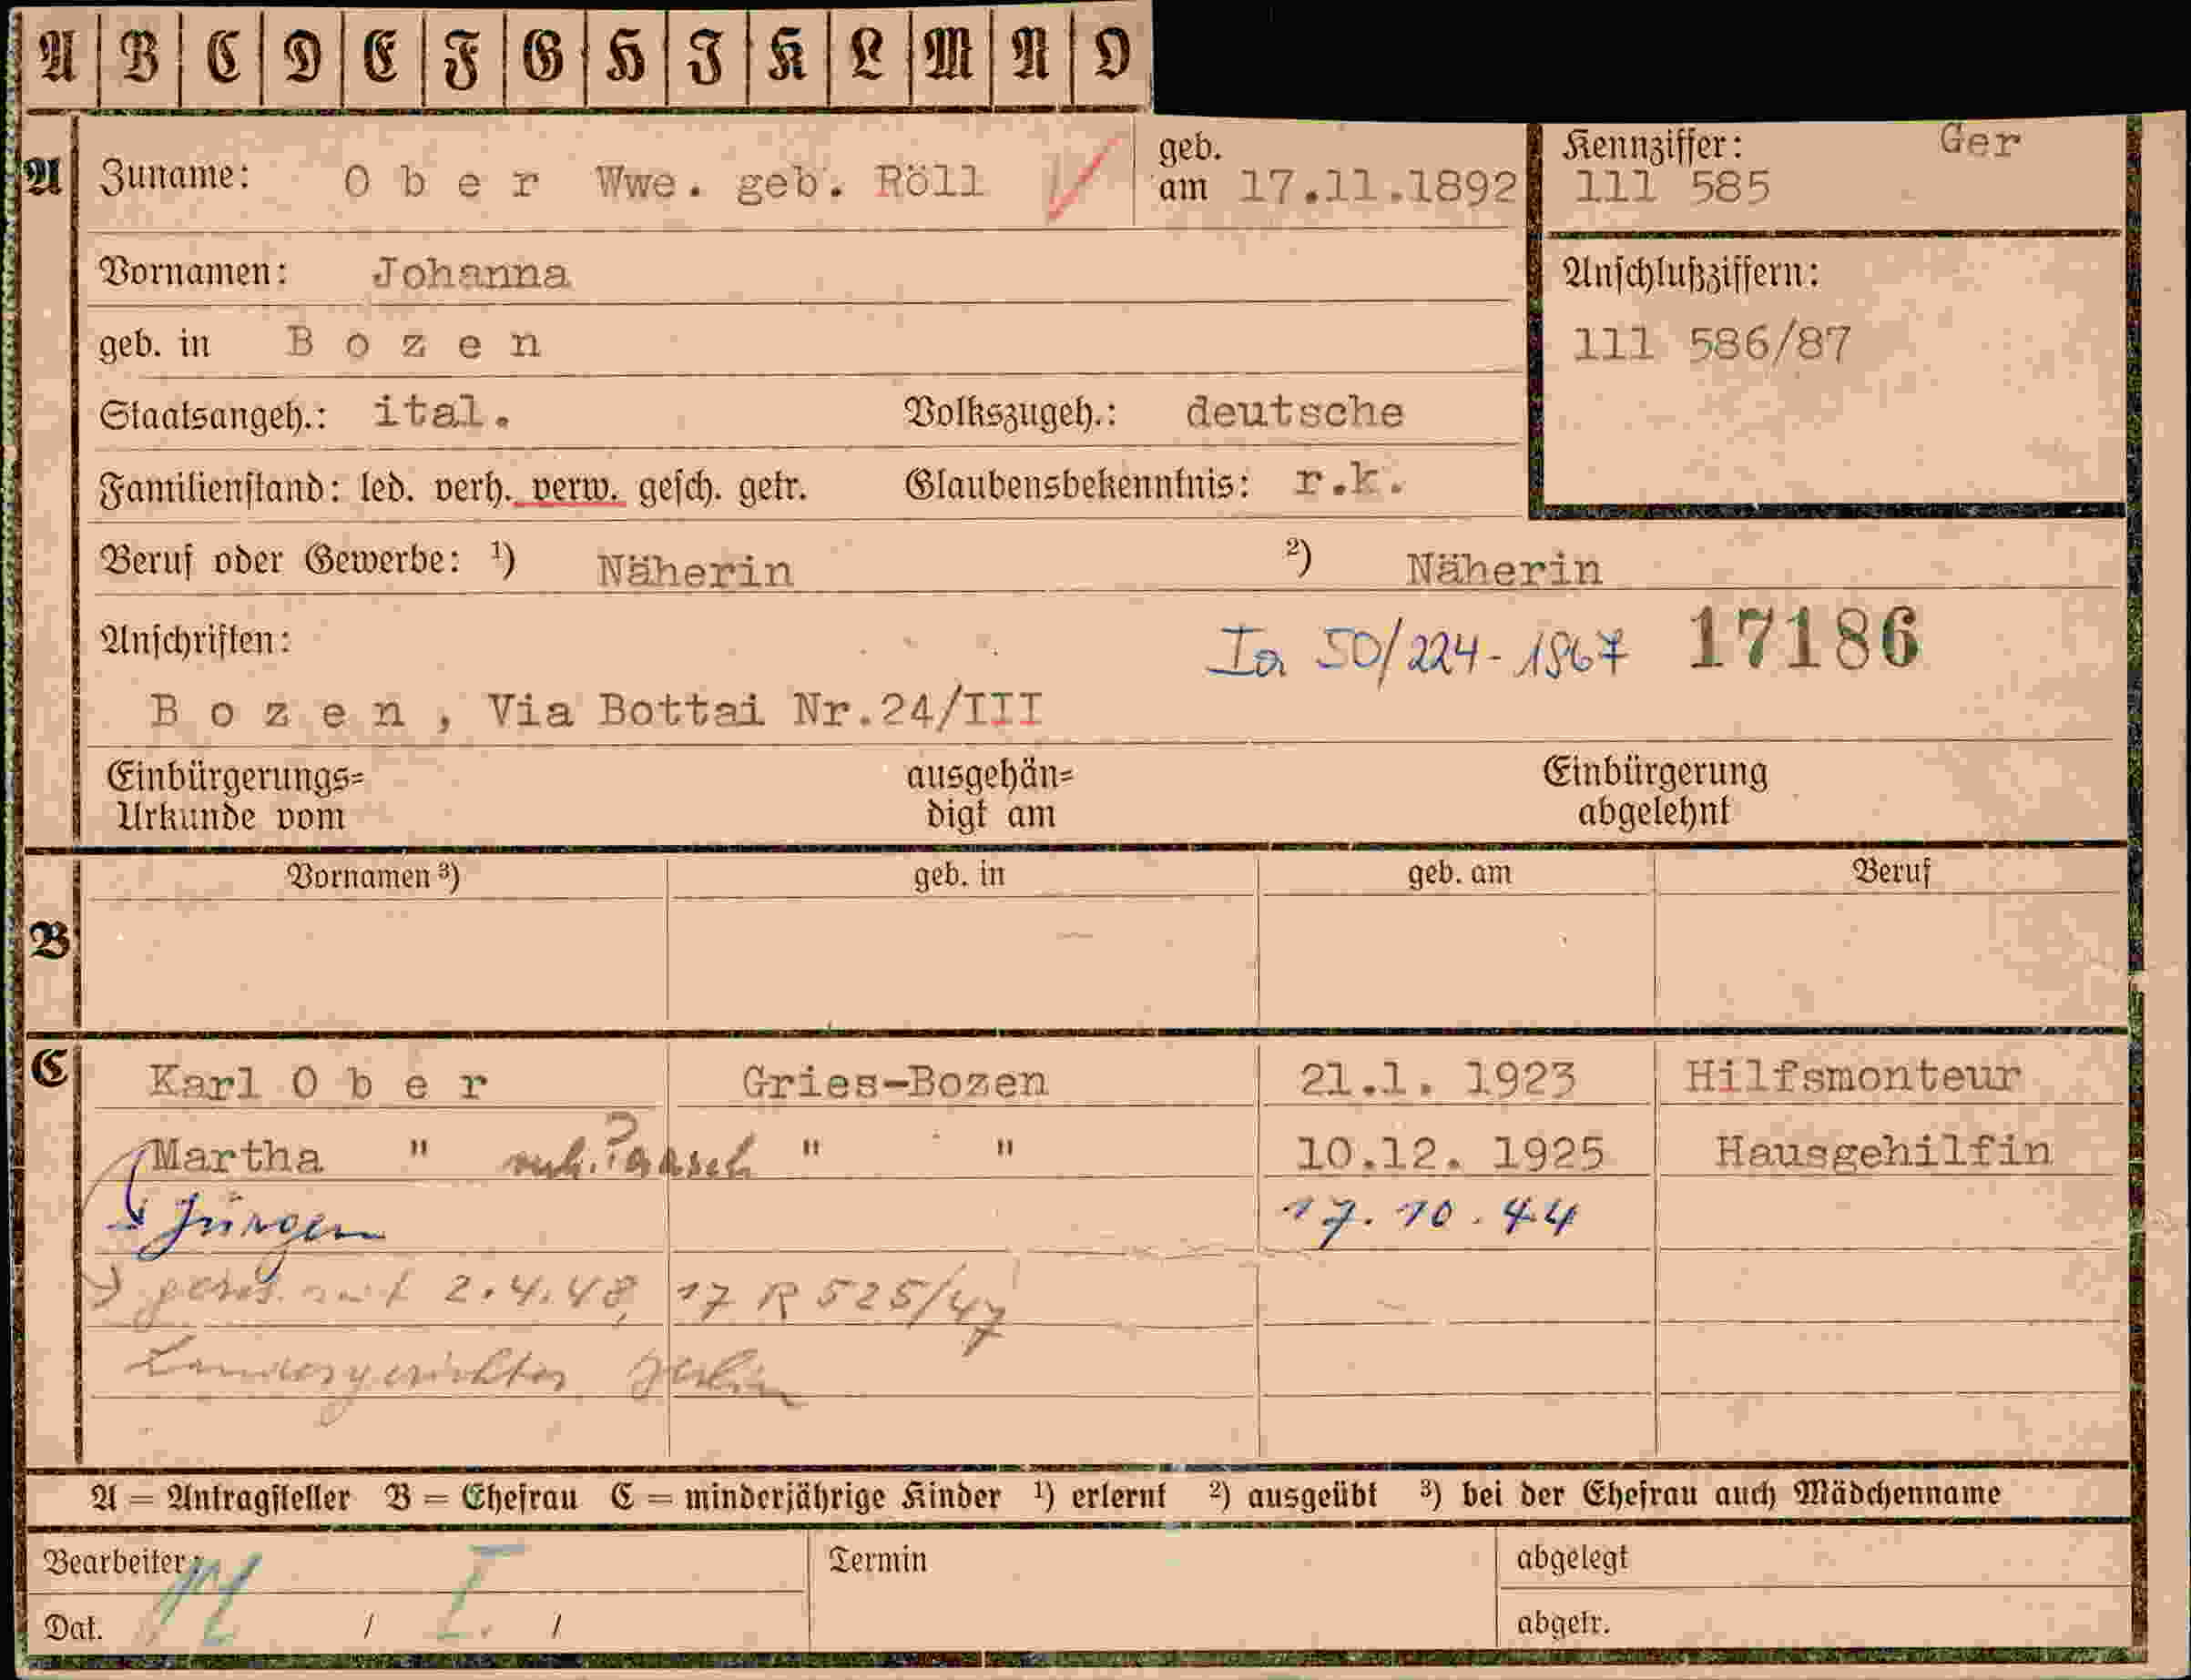 A B C D E F G H I K L M N O
A Zuname: O b e r Wwe. geb. Röll geb. am 17.11.1892
Kennziffer: Ger
111 585
Vornamen: Johanna
Anschlußziffern:
111 586/87
geb. in B o z e n
Staatsangeh.: ital. Volkszugeh.: deutsche
Familienstand: led. verh. verw. gesch. getr. Glaubensbekenntnis: r.k.
Beruf oder Gewerbe: 1) Näherin 2) Näherin
Anschriften: Ia 50/224-1867 17186
B o z e n , Via Bottai Nr.24/III
Einbürgerungs= ausgehän= Einbürgerung
Urkunde vom digt am abgelehnt
Vornamen 3) geb. in geb. am Beruf
B
C Karl O b e r Gries-Bozen 21.1. 1923 Hilfsmonteur
Martha " " " 10.12. 1925 Hausgehilfin
Jürgen 17.10.44
2.4.48, 17 R 525/47
Berlin
A = Antragsteller B = Ehefrau C = minderjährige Kinder 1) erlernt 2) ausgeübt 3) bei der Ehefrau auch Mädchenname
Bearbeiter: Termin abgelegt
Dat. / / abgetr.